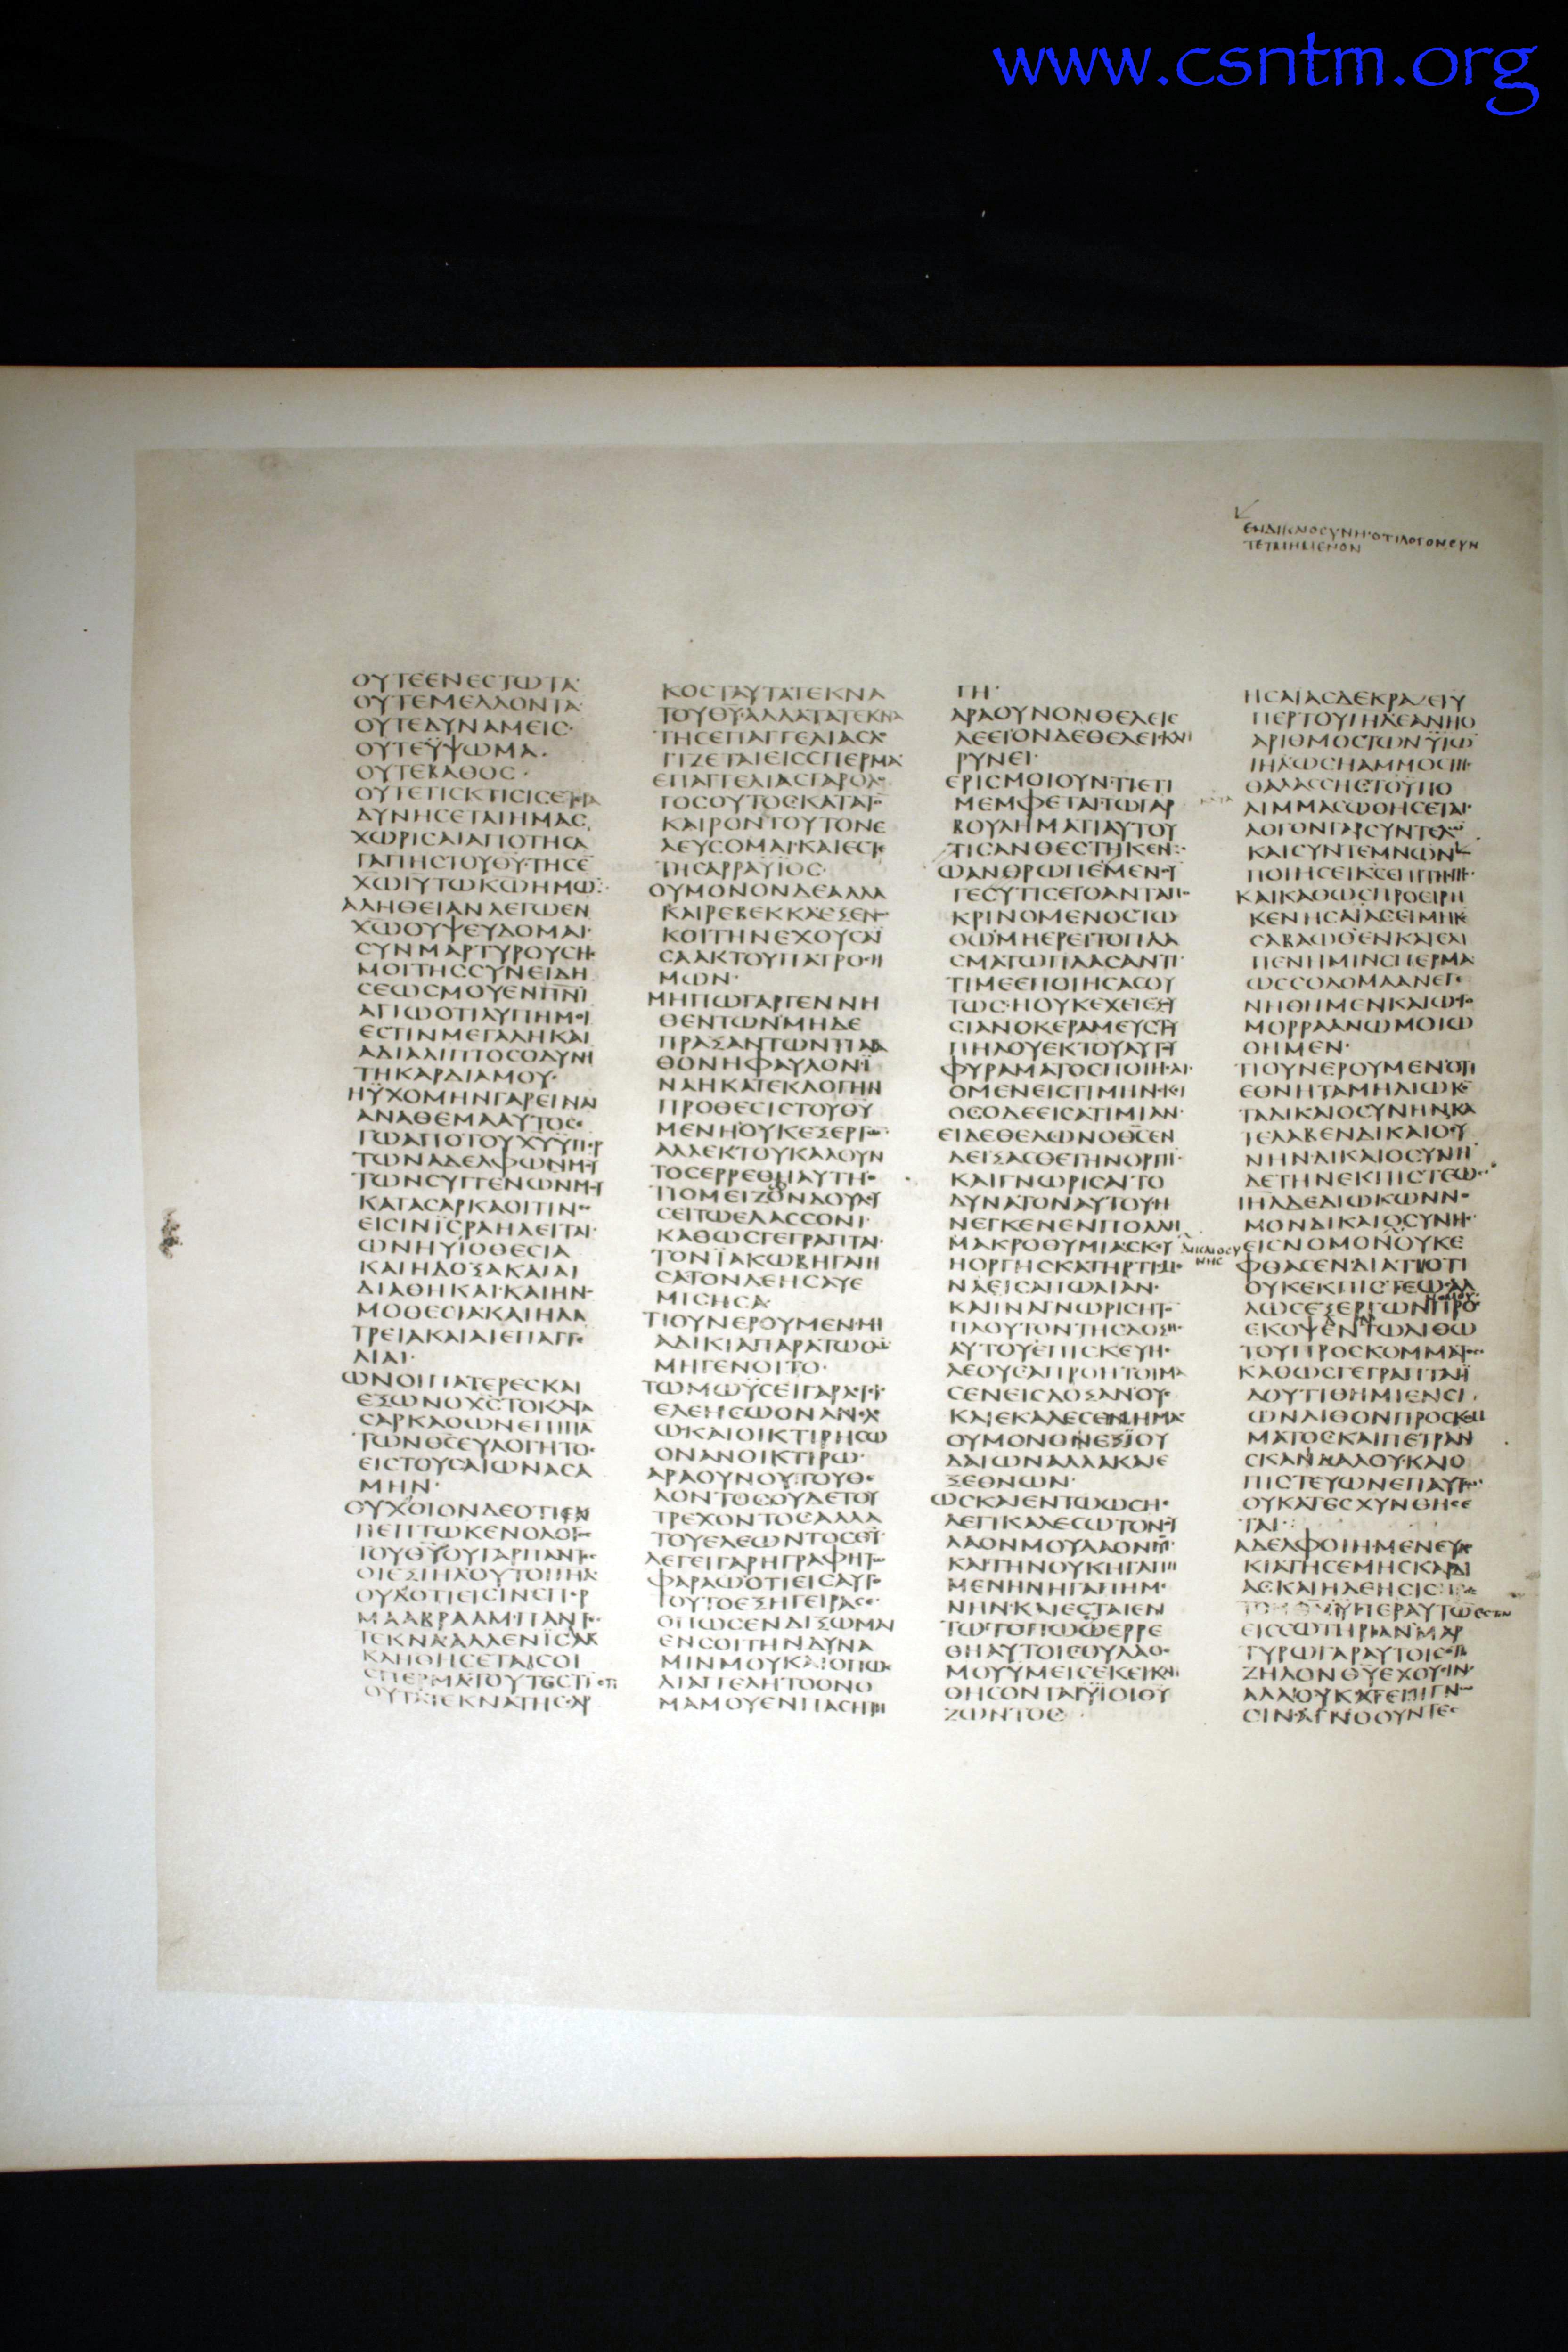 www.csntm.org
ΕΝΔΙΚΑΙΟCΥΝΗ·ΟΤΙΛΟΓΟΝCΥΝ
ΤΕΤΜΗΜΕΝΟΝ
ΟΥΤΕΕΝΕCΤΩΤΑ·
ΟΥΤΕΜΕΛΛΟΝΤΑ
ΟΥΤΕΔΥΝΑΜΕΙC·
ΟΥΤΕΫΨΩΜΑ·
ΟΥΤΕΒΑΘΟC·
ΟΥΤΕΤΙCΚΤΙCΙC
ΔΥΝΗCΕΤΑΙΗΜΑC
ΧΩΡΙCΑΙΑΠΟΤΗCΑ
ΓΑΠΗCΤΟΥΘΥ·ΤΗCΕ
ΧΩΙΥΤΩΚΩΗΜΩ
ΑΛΗΘΕΙΑΝΛΕΓΩΕΝ
ΧΩΟΥΨΕΥΔΟΜΑΙ·
CΥΝΜΑΡΤΥΡΟΥCΗ
ΜΟΙΤΗCCΥΝΕΙΔΗ
CΕΩCΜΟΥΕΝΠΝΙ
ΑΓΙΩΟΤΙΛΥΠΗΜΟΙ
ΕCΤΙΝΜΕΓΑΛΗΚΑΙ
ΑΔΙΑΛΙΠΤΟCΟΔΥΝΗ
ΤΗΚΑΡΔΙΑΜΟΥ·
ΗΫΧΟΜΗΝΓΑΡΕΙΝΑΙ
ΑΝΑΘΕΜΑΑΥΤΟC
ΓΩΑΠΟΤΟΥΧΥΫΠΕΡ
ΤΩΝΑΔΕΛΦΩΝΜΟΥ
ΤΩΝCΥΓΓΕΝΩΝΜΟΥ
ΚΑΤΑCΑΡΚΑΟΙΤΙΝΕC
ΕΙCΙΝΪCΡΑΗΛΕΙΤΑΙ·
ΩΝΗΥΪΟΘΕCΙΑ
ΚΑΙΗΔΟΞΑΚΑΙΑΙ
ΔΙΑΘΗΚΑΙ·ΚΑΙΗΝΟ
ΜΟΘΕCΙΑ·ΚΑΙΗΛΑ
ΤΡΕΙΑΚΑΙΑΙΕΠΑΓΓΕ
ΛΙΑΙ·
ΩΝΟΙΠΑΤΕΡΕCΚΑΙ
ΕΞΩΝΟΧCΤΟΚΑΤΑ
CΑΡΚΑΟΩΝΕΠΙΠΑ
ΤΩΝΘCΕΥΛΟΓΗΤΟC
ΕΙCΤΟΥCΑΙΩΝΑCΑ
ΜΗΝ·
ΟΥΧΟΙΟΝΔΕΟΤΙΕΚ
ΠΕΠΤΩΚΕΝΟΛΟΓΟC
ΤΟΥΘΥΟΥΓΑΡΠΑΝΤΕC
ΟΙΕΞΙΗΛΟΥΤΟΙΙΗΛ
ΟΥΧΟΤΙΕΙCΙΝCΠΕΡ
ΜΑΑΒΡΑΑΜ·ΠΑΝΤΕC
ΤΕΚΝΑ·ΑΛΛΕΝΪCΑΑΚ
ΚΛΗΘΗCΕΤΑΙCΟΙ
CΠΕΡΜΑ·ΤΟΥΤΕCΤΙΟΤΙ
ΟΥΤΑΤΕΚΝΑΤΗCCΑΡ
ΚΟCΤΑΥΤΑΤΕΚΝΑ
ΤΟΥΘΥ·ΑΛΛΑΤΑΤΕΚΝΑ
ΤΗCΕΠΑΓΓΕΛΙΑCΛΟ
ΓΙΖΕΤΑΙΕΙCCΠΕΡΜΑ·
ΕΠΑΓΓΕΛΙΑCΓΑΡΟΛΟ
ΓΟCΟΥΤΟCΚΑΤΑΤΟΝ
ΚΑΙΡΟΝΤΟΥΤΟΝΕ
ΛΕΥCΟΜΑΙ·ΚΑΙΕCΤΑΙ
ΤΗCΑΡΡΑΫΙΟC·
ΟΥΜΟΝΟΝΔΕΑΛΛΑ
ΚΑΙΡΕΒΕΚΚΑΕΞΕΝΟC
ΚΟΙΤΗΝΕΧΟΥCΑΪ
CΑΑΚΤΟΥΠΑΤΡΟCΗ
ΜΩΝ·
ΜΗΠΩΓΑΡΓΕΝΝΗ
ΘΕΝΤΩΝΜΗΔΕ
ΠΡΑΞΑΝΤΩΝΤΙΑΓΑ
ΘΟΝΗΦΑΥΛΟΝ·Ϊ
ΝΑΗΚΑΤΕΚΛΟΓΗΝ
ΠΡΟΘΕCΙCΤΟΥΘΥ
ΜΕΝΗΟΥΚΕΞΕΡΓΩΝ
ΑΛΛΕΚΤΟΥΚΑΛΟΥΝ
ΤΟCΕΡΡΕΘΗΑΥΤΗΟ
ΤΙΟΜΕΙΖΩΝΔΟΥΛΕΥ
CΕΙΤΩΕΛΑCCΟΝΙ·
ΚΑΘΩCΓΕΓΡΑΠΤΑΙ·
ΤΟΝΪΑΚΩΒΗΓΑΠΗ
CΑΤΟΝΔΕΗCΑΥΕ
ΜΙCΗCΑ·
ΤΙΟΥΝΕΡΟΥΜΕΝ·ΜΗ
ΑΔΙΚΙΑΠΑΡΑΤΩΘΩ
ΜΗΓΕΝΟΙΤΟ·
ΤΩΜΩΫCΕΙΓΑΡΛΕΓΕΙ
ΕΛΕΗCΩΟΝΑΝΕΛΕ
ΩΚΑΙΟΙΚΤΙΡΗCΩ
ΟΝΑΝΟΙΚΤΙΡΩ·
ΑΡΑΟΥΝΟΥΤΟΥΘΕ
ΛΟΝΤΟCΟΥΔΕΤΟΥ
ΤΡΕΧΟΝΤΟCΑΛΛΑ
ΤΟΥΕΛΕΩΝΤΟCΘΥ·
ΛΕΓΕΙΓΑΡΗΓΡΑΦΗΤΩ
ΦΑΡΑΩΟΤΙΕΙCΑΥΤΟ
ΤΟΥΤΟΕΞΗΓΕΙΡΑCΕ
ΟΠΩCΕΝΔΙΞΩΜΑΙ
ΕΝCΟΙΤΗΝΔΥΝΑ
ΜΙΝΜΟΥΚΑΙΟΠΩC
ΔΙΑΓΓΕΛΗΤΟΟΝΟ
ΜΑΜΟΥΕΝΠΑCΗΤΗ
ΓΗ·
ΑΡΑΟΥΝΟΝΘΕΛΕΙΕ
ΛΕΕΙΟΝΔΕΘΕΛΕΙCΚΛΗ
ΡΥΝΕΙ·
ΕΡΙCΜΟΙΟΥΝ·ΤΙΕΤΙ
ΜΕΜΦΕΤΑΙ·ΤΩΓΑΡ
ΒΟΥΛΗΜΑΤΙΑΥΤΟΥ
ΤΙCΑΝΘΕCΤΗΚΕΝ·
ΩΑΝΘΡΩΠΕΜΕΝΟΥΝ
ΓΕCΥΤΙCΕΙΟΑΝΤΑΠΟ
ΚΡΙΝΟΜΕΝΟCΤΩ
ΘΩΜΗΕΡΕΙΤΟΠΛΑ
CΜΑΤΩΠΛΑCΑΝΤΙ·
ΤΙΜΕΕΠΟΙΗCΑCΟΥ
ΤΩC·ΗΟΥΚΕΧΕΙΕΞΟΥ
CΙΑΝΟΚΕΡΑΜΕΥCΤΟΥ
ΠΗΛΟΥΕΚΤΟΥΑΥΤΟΥ
ΦΥΡΑΜΑΤΟCΠΟΙΗCΑΙ
ΟΜΕΝΕΙCΤΙΜΗΝCΚΕΥ
ΟCΟΔΕΕΙCΑΤΙΜΙΑΝ·
ΕΙΔΕΘΕΛΩΝΟΘCΕΝ
ΔΕΙΞΑCΘΕΤΗΝΟΡΓΗ
ΚΑΙΓΝΩΡΙCΑΙΤΟ
ΔΥΝΑΤΟΝΑΥΤΟΥΗ
ΝΕΓΚΕΝΕΝΠΟΛΛΗ
ΜΑΚΡΟΘΥΜΙΑCΚΕΥ
ΗΟΡΓΗCΚΑΤΗΡΤΙCΜΕ
ΝΑΕΙCΑΠΩΛΙΑΝ·
ΚΑΙΙΝΑΓΝΩΡΙCΗΤΟ
ΠΛΟΥΤΟΝΤΗCΔΟΞΗC
ΑΥΤΟΥΕΠΙCΚΕΥΗ
ΛΕΟΥCΑΠΡΟΗΤΟΙΜΑ
CΕΝΕΙCΔΟΞΑΝΟΥC
ΚΑΙΕΚΑΛΕCΕΝΗΜΑC
ΟΥΜΟΝΟΝΕΞΪΟΥ
ΔΑΙΩΝΑΛΛΑΚΑΙΕ
ΞΕΘΝΩΝ·
ΩCΚΑΙΕΝΤΩΩCΗΕ
ΛΕΓΙΚΑΛΕCΩΤΟΝΟΥ
ΛΑΟΝΜΟΥΛΑΟΝΜΟΥ
ΚΑΙΤΗΝΟΥΚΗΓΑΠΗ
ΜΕΝΗΝΗΓΑΠΗΜΕ
ΝΗΝ·ΚΑΙΕCΤΑΙΕΝ
ΤΩΤΟΠΩΩΕΡΡΕ
ΘΗΑΥΤΟΙCΟΥΛΑΟC
ΜΟΥΥΜΕΙCΕΚΕΙΚΛΗ
ΘΗCΟΝΤΑΙΫΙΟΙΘΥ
ΖΩΝΤΟC·
ΔΙΚΑΙΟCΥ
ΝΗC
ΗCΑΙΑCΔΕΚΡΑΖΕΙΫ
ΠΕΡΤΟΥΙΗΛΕΑΝΗΟ
ΑΡΙΘΜΟCΤΩΝΫΙΩ
ΙΗΛΩCΗΑΜΜΟCΤΗC
ΘΑΛΑCCΗCΤΟΫΠΟ
ΛΙΜΜΑCΩΘΗCΕΤΑΙ·
ΛΟΓΟΝΓΑΡCΥΝΤΕΛΩ
ΚΑΙCΥΝΤΕΜΝΩΝ
ΠΟΙΗCΕΙΚCΕΠΙΤΗCΓΗC·
ΚΑΙΚΑΘΩCΠΡΟΕΙΡΗ
ΚΕΝΗCΑΪΑCΕΙΜΗΚC
CΑΒΑΩΘΕΝΚΑΤΕΛΙ
ΠΕΝΗΜΙΝCΠΕΡΜΑ
ΩCCΟΔΟΜΑΑΝΕΓΕ
ΝΗΘΗΜΕΝΚΑΙΩCΓΟ
ΜΟΡΡΑΑΝΩΜΟΙΩ
ΘΗΜΕΝ·
ΤΙΟΥΝΕΡΟΥΜΕΝΟΤΙ
ΕΘΝΗΤΑΜΗΔΙΩΚΟ
ΤΑΔΙΚΑΙΟCΥΝΗΝΚΑ
ΤΕΛΑΒΕΝΔΙΚΑΙΟCΥ
ΝΗΝ·ΔΙΚΑΙΟCΥΝΗ
ΔΕΤΗΝΕΚΠΙCΤΕΩC·
ΙΗΛΔΕΔΙΩΚΩΝΝΟ
ΜΟΝΔΙΚΑΙΟCΥΝΗC
ΕΙCΝΟΜΟΝΟΥΚΕ
ΦΘΑCΕΝ·ΔΙΑΤΙΟΤΙ
ΟΥΚΕΚΠΙCΤΕΩCΑΛ
ΛΩCΕΞΕΡΓΩΝΠΡΟC
ΕΚΟΨΕΝΤΩΛΙΘΩ
ΤΟΥΠΡΟCΚΟΜΜΑΤΟC
ΚΑΘΩCΓΕΓΡΑΠΤΑΙΪ
ΔΟΥΤΙΘΗΜΙΕΝCΙ
ΩΝΛΙΘΟΝΠΡΟCΚΟΜ
ΜΑΤΟCΚΑΙΠΕΤΡΑΝ
CΚΑΝΔΑΛΟΥ·ΚΑΙΟ
ΠΙCΤΕΥΩΝΕΠΑΥΤΩ
ΟΥΚΑΤΕCΧΥΝΘΗCΕ
ΤΑΙ·
ΑΔΕΛΦΟΙΗΜΕΝΕΥΔΟ
ΚΙΑΤΗCΕΜΗCΚΑΡΔΙ
ΑCΚΑΙΗΔΕΗCΙC
ΫΠΕΡΑΥΤΩΕCΤΙΝ
ΕΙCCΩΤΗΡΙΑΝ·ΜΑΡ
ΤΥΡΩΓΑΡΑΥΤΟΙCΟΤΙ
ΖΗΛΟΝΘΥΕΧΟΥCΙΝ·
ΑΛΛΟΥΚΑΤΕΠΙΓΝΩ
CΙΝ·ΑΓΝΟΟΥΝΤΕC